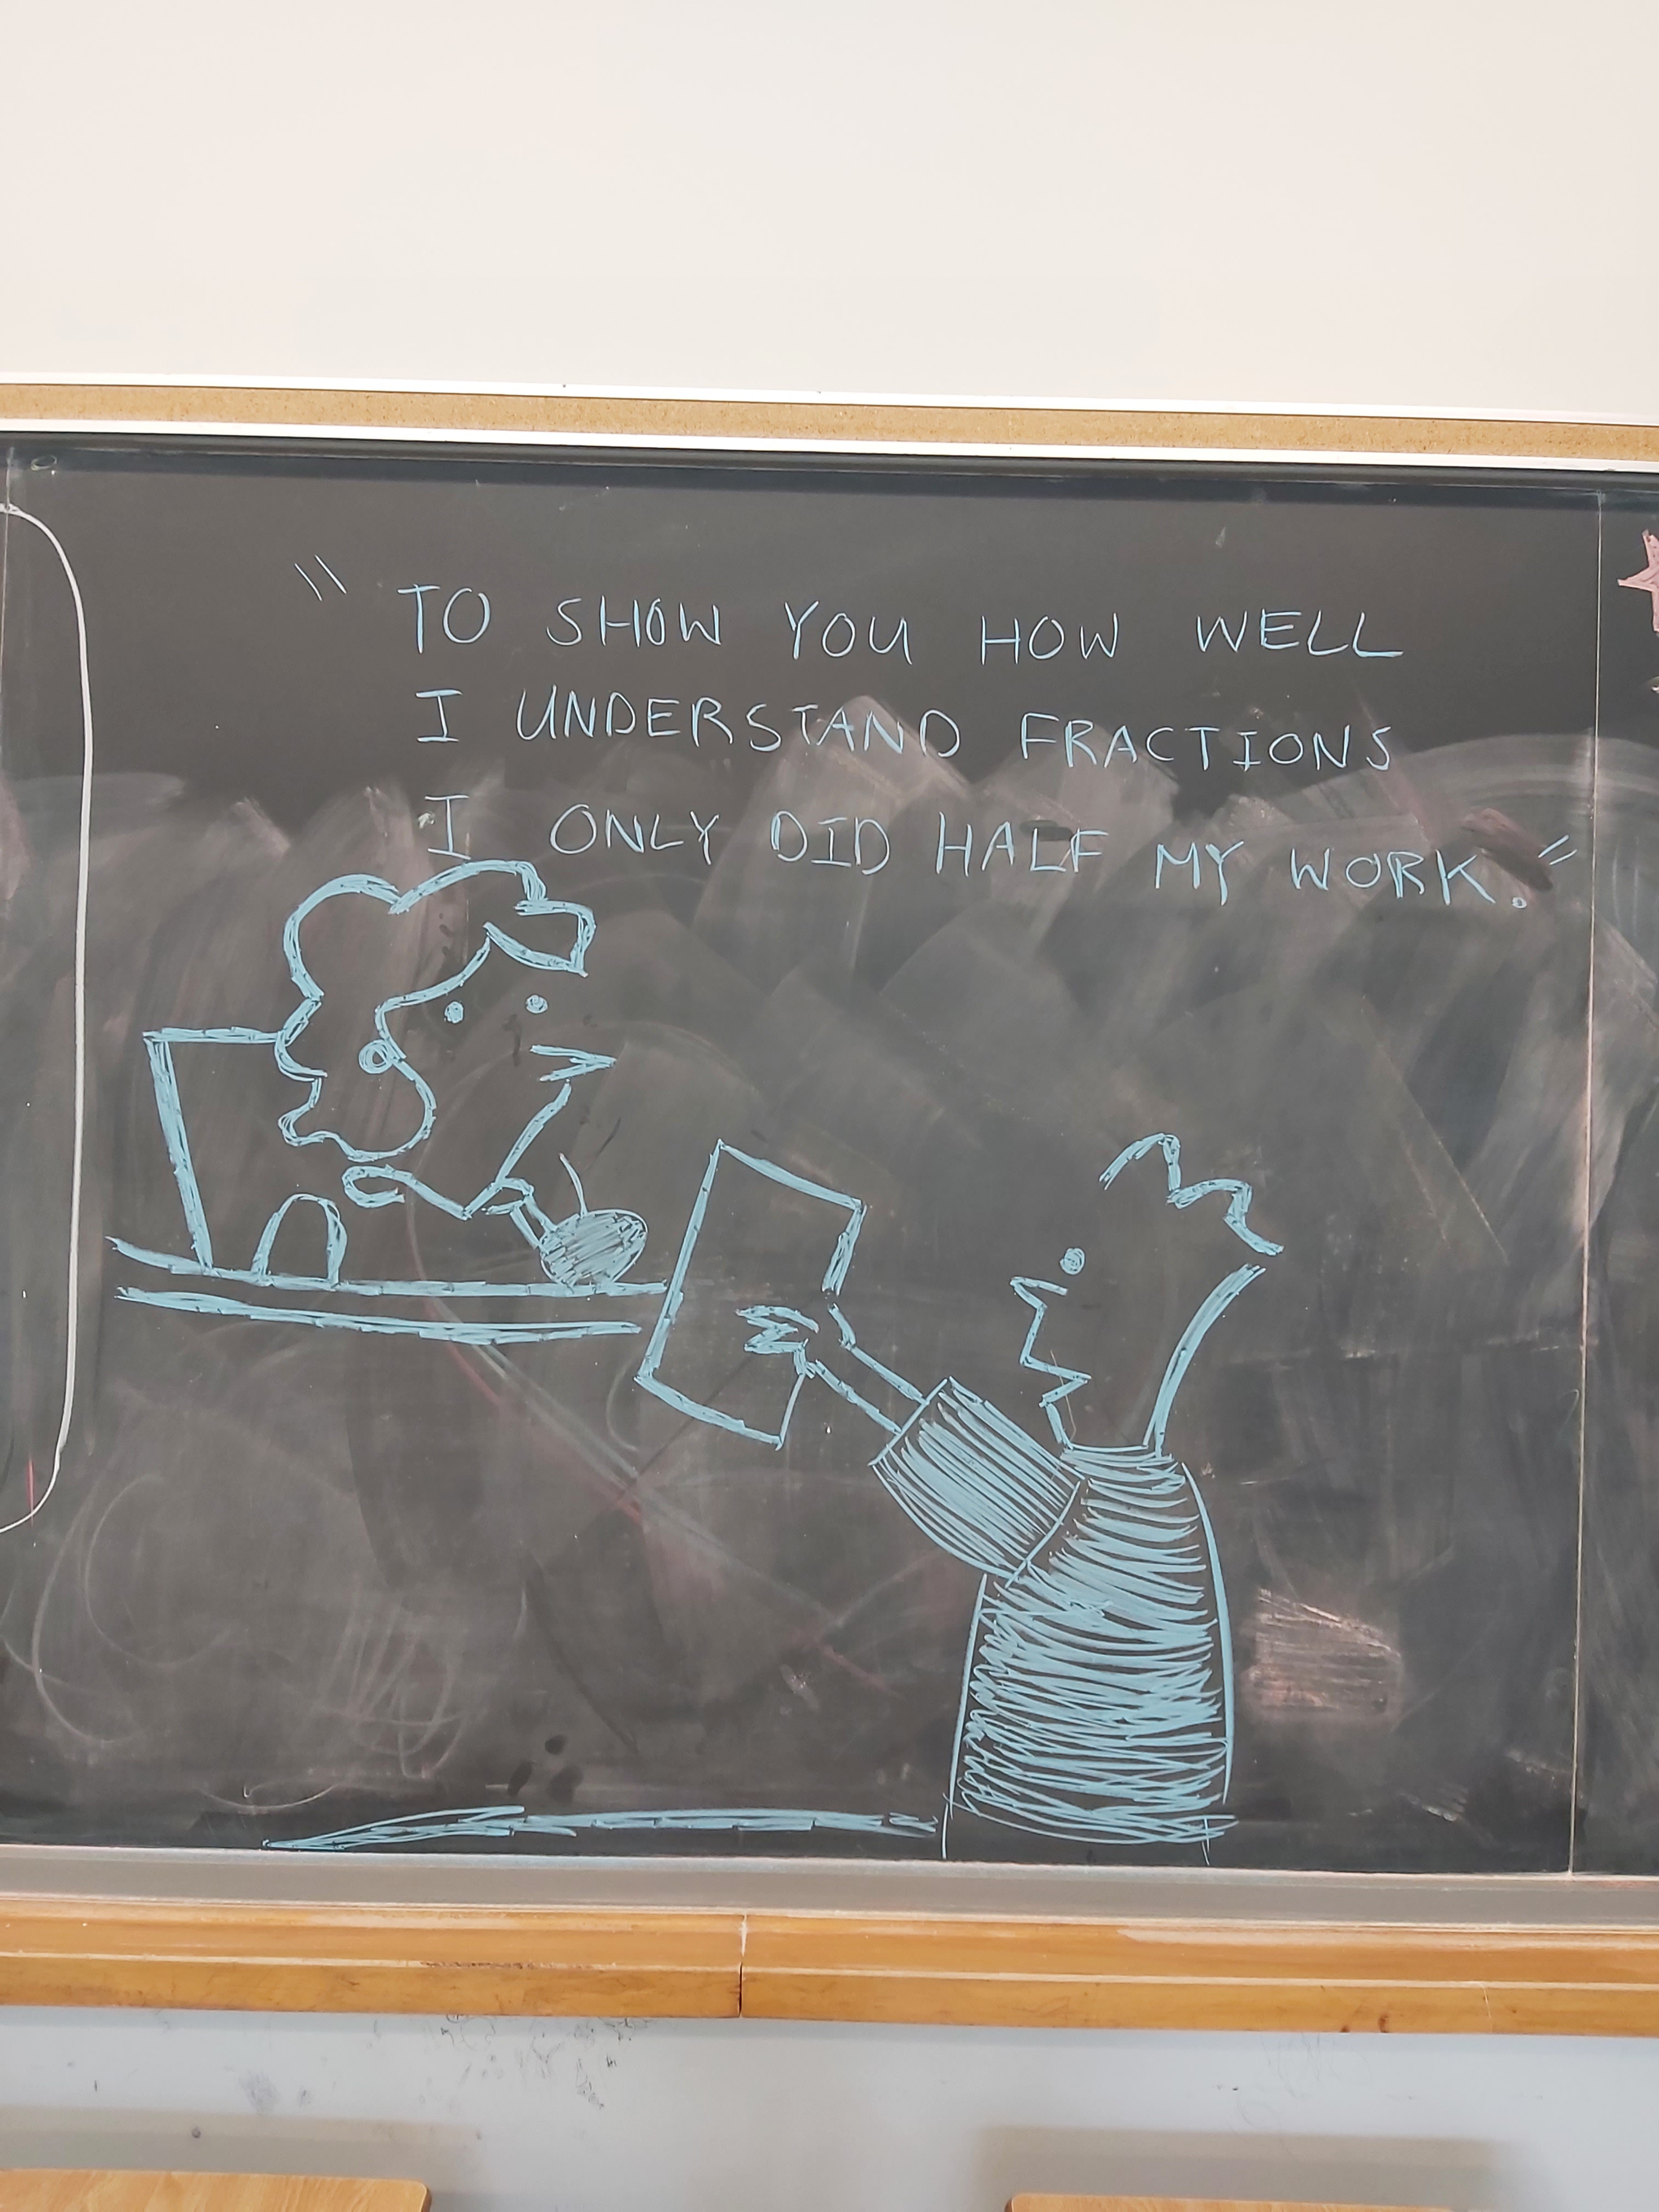 "TO SHOW YOU HOW WELL
I UNDERSTAND FRACTIONS
I ONLY DID HALF MY WORK."